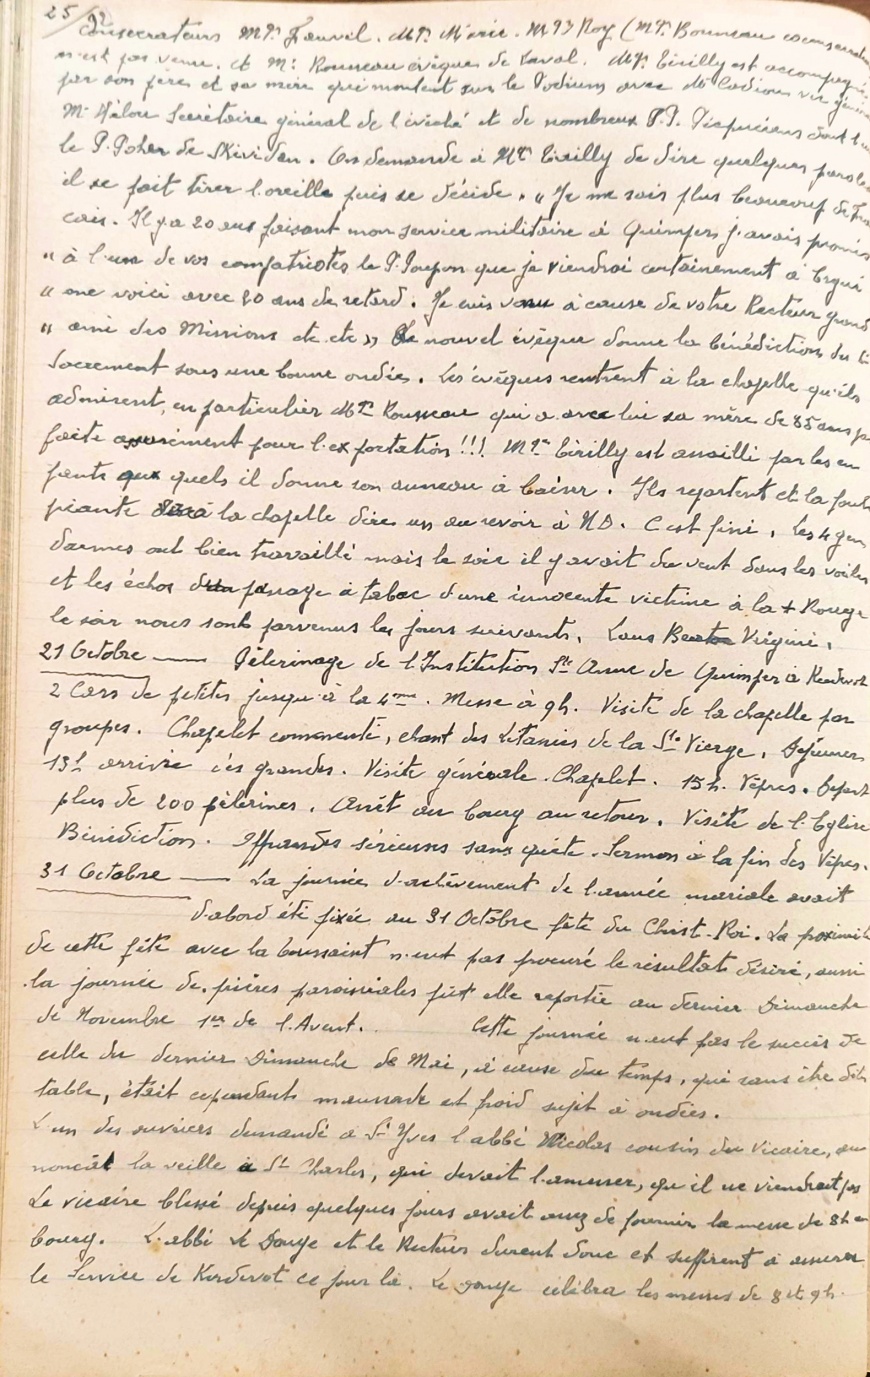 25/92
Consecrateurs Mgr Fauvel. Mgr Marie. Mgr Roy (Mgr Bonneau
n'est pas venu. et Mr Rousseau évêque de Laval. Mgr Tirilly est accompagné
par son père et sa mère qui montent sur le Podium avec Mr Cadiou vic géné
Mr Hélou Secrétaire général de l'évêché et de nombreux P.P. Picpuciens dont
le P. Poher de Skividen. On demande à Mgr Tirilly de dire quelques paroles
il se fait tirer l'oreille puis se décide. "Je ne sais plus beaucoup de Fran
cais. Il y a 20 ans faisant mon service militaire à Quimper j'avais promis
" à l'un de vos compatriotes le P. Poupon que je viendrai certainement à Ergué
" me voici avec 20 ans de retard. Je suis venu à cause de votre Recteur grand
" ami des Missions etc etc" Le nouvel évêque donne la bénédiction du
Sacrement sous une bonne ondée. Les évêques rentrent à la chapelle qu'ils
admirent, en particulier Mgr Rousseau qui a avec lui sa mère de 85 ans
faite assurément pour l'exportation !!! Mgr Tirilly est assailli par les en
fants aux quels il donne son anneau à baiser. Ils repartent et la foule
priante à la chapelle dire un au revoir à ND. C'est fini. Les 4 gen
darmes ont bien travaillé mais le soir il y avait du vent dans les voiles
et les échos d'un passage à tabac d'une innocente victime à la + Rouge
le soir nous sont parvenus les jours suivants. Laus Virgini.
21 Octobre — Pèlerinage de l'Institution Ste Anne de Quimper à Kerdevot
2 Cars de petites jusqu'à la 4ème. Messe à 9h. Visite de la chapelle par
groupes. Chapelet commenté, chant des Litanies de la Ste Vierge. Déjeuner
13h arrivée des grandes. Visite générale. Chapelet. 15h. Vêpres. Départ
plus de 200 pèlerines. Arrêt au bourg au retour. Visite de l'Eglise
Bénédiction. Offrandes sérieuses sans quête. Sermon à la fin des Vêpres.
31 Octobre — La journée d'achèvement de l'année mariale avait
d'abord été fixée au 31 Octobre fête du Christ-Roi. La proximité
de cette fête avec la Toussaint n'eut pas procuré le résultat désiré, aussi
la journée de prières paroissiales fut elle reportée au dernier Dimanche
de Novembre 1er de l'Avent. Cette journée n'eut pas le succès de
celle du dernier Dimanche de Mai, à cause du temps, qui sans être détes
table, était cependant maussade et froid sujet à ondées.
L'un des ouvriers demandé à St Yves l'abbé Nicolas cousin du Vicaire, an
noncât la veille à St Charles, qui devait l'amener, qu'il ne viendrait pas
Le vicaire blessé depuis quelques jours avait assez de fournir la messe de 8h au
bourg. L'abbé Le Douge et le Recteur durent donc et suffirent à assurer
le Service de Kerdevot ce jour là. Le Douge célébra les messes de 8 et 9h.